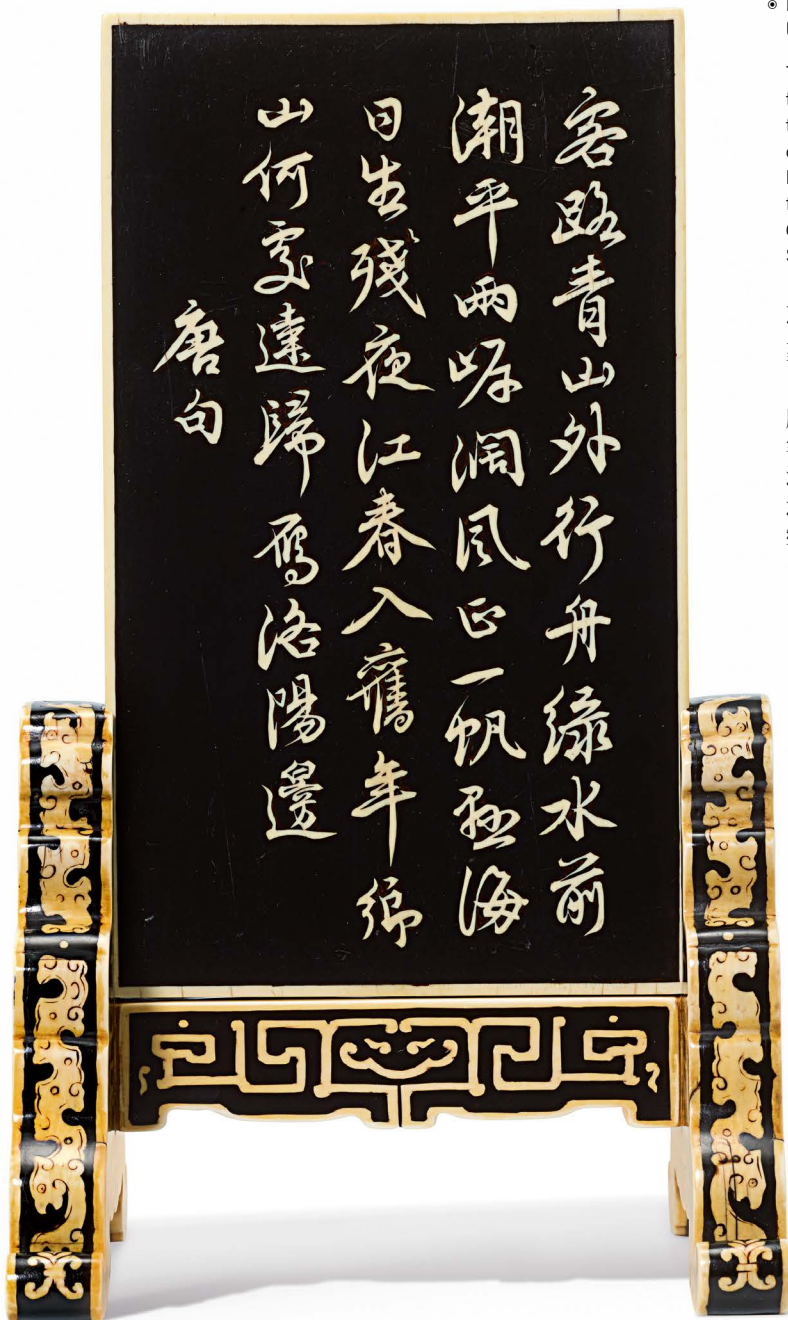 客路青山外行舟綠水前
潮平兩岸濶風正一帆懸海
日生殘夜江春入舊年鄉
山何處達歸鴈洛陽邊
唐句